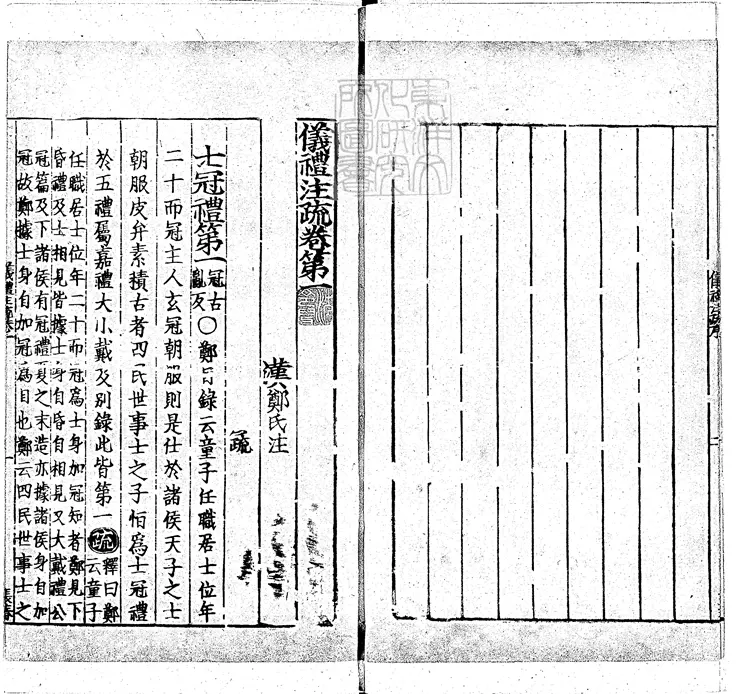 儀禮注疏卷第一
漢鄭氏注
疏
士冠禮第一
冠古
亂反
〇鄭目錄云童子任職居士位年
二十而冠主人玄冠朝服則是仕於諸侯天子之士
朝服皮弁素積古者四民世事士之子恒爲士冠禮
於五禮屬嘉禮大小戴及別錄此皆第一
疏
釋曰鄭
云童子
任職居士位年二十而冠爲士身加冠知者鄭見下
昏禮及士相見皆據士身自昏自相見又大戴禮公
冠篇及下諸侯有冠禮夏之末造亦據諸侯身自加
冠故鄭據士身自加冠爲目也鄭云四民世事士之